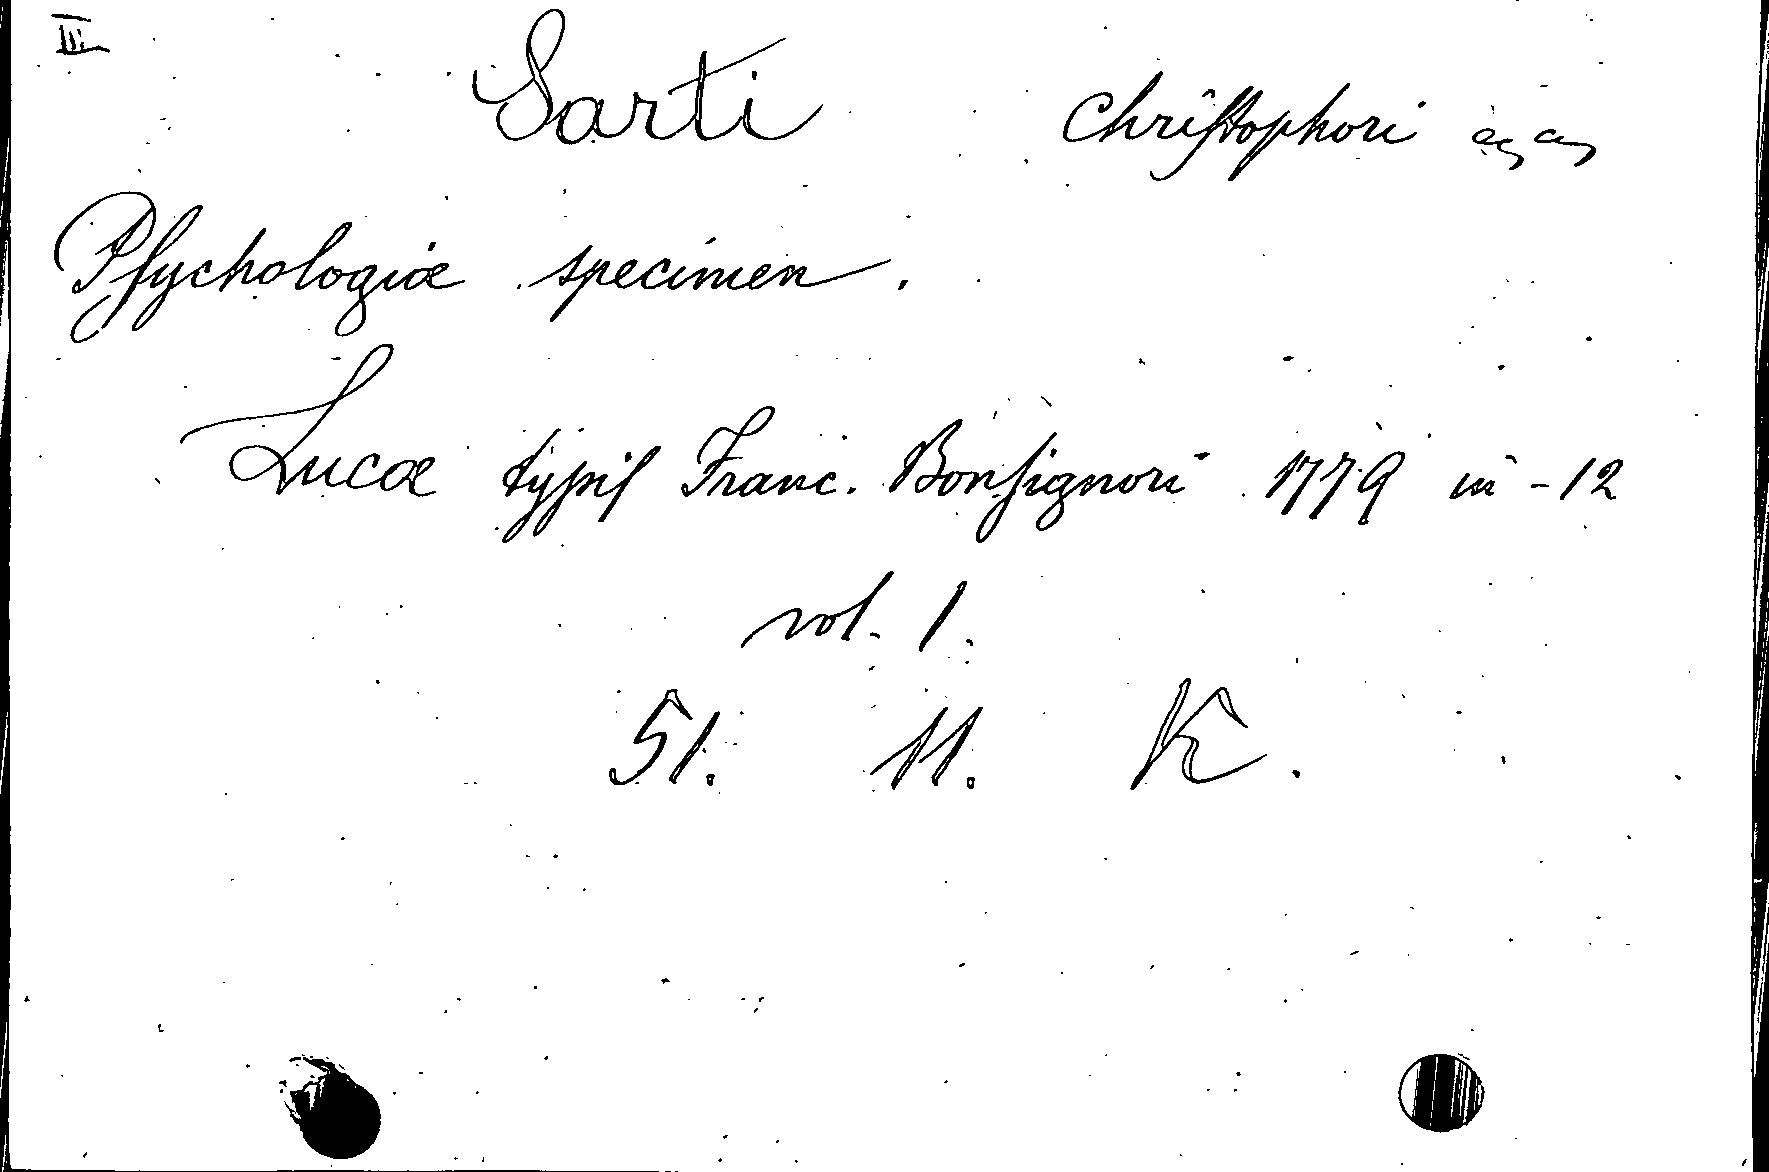 III
Sarti Christophori
Pſychologiæ specimen.
Lucæ typiſ Franc. Bonſignori 1779 in-12
vol. 1.
51. 11. K.